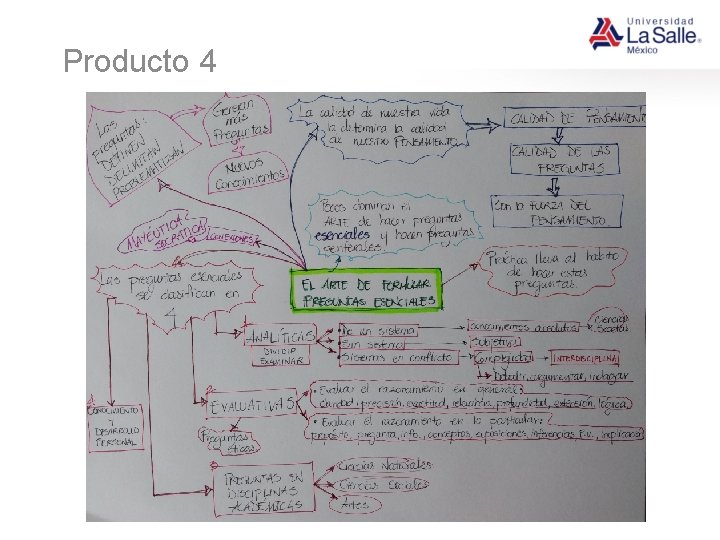 Producto 4
Universidad
La Salle
México
Las
preguntas:
DEFINEN
DELIMITAN
PROBLEMATIZAN
Generan
más
Preguntas
Nuevos
Conocimientos
La calidad de nuestra vida
la determina la calidad
de nuestro PENSAMIENTO
CALIDAD DE PENSAMIENTO
CALIDAD DE LAS
PREGUNTAS
Son la FUERZA DEL
PENSAMIENTO
Pocos dominan el
ARTE de hacer preguntas
esenciales y hacen preguntas
MAYEUTICA
SOCRATICA
¿CONEXIONES?
Práctica lleva al hábito
de hacer estas
preguntas.
EL ARTE DE FORMULAR
PREGUNTAS ESENCIALES
Las preguntas esenciales
se clasifican en
4
1.
ANALÍTICAS
DIVIDIR
EXAMINAR
De un sistema
Sin sistema
Sistemas en conflicto
Conocimientos absolutos
Ciencias
Subjetivo
Complejidad
INTERDISCIPLINA
Debatir, argumentar, indagar
2.
EVALUATIVAS
Preguntas
éticas
• Evaluar el razonamiento en general:
claridad, precisión, exactitud, relación, profundidad, extensión, lógica
• Evaluar el razonamiento en lo particular:
propósito, pregunta, info., conceptos, suposiciones, inferencias, P.V., implicación
3.
PREGUNTAS EN
DISCIPLINAS
ACADÉMICAS
Ciencias Naturales
Ciencias Sociales
Artes
4.
CONOCIMIENTO
Y
DESARROLLO
PERSONAL